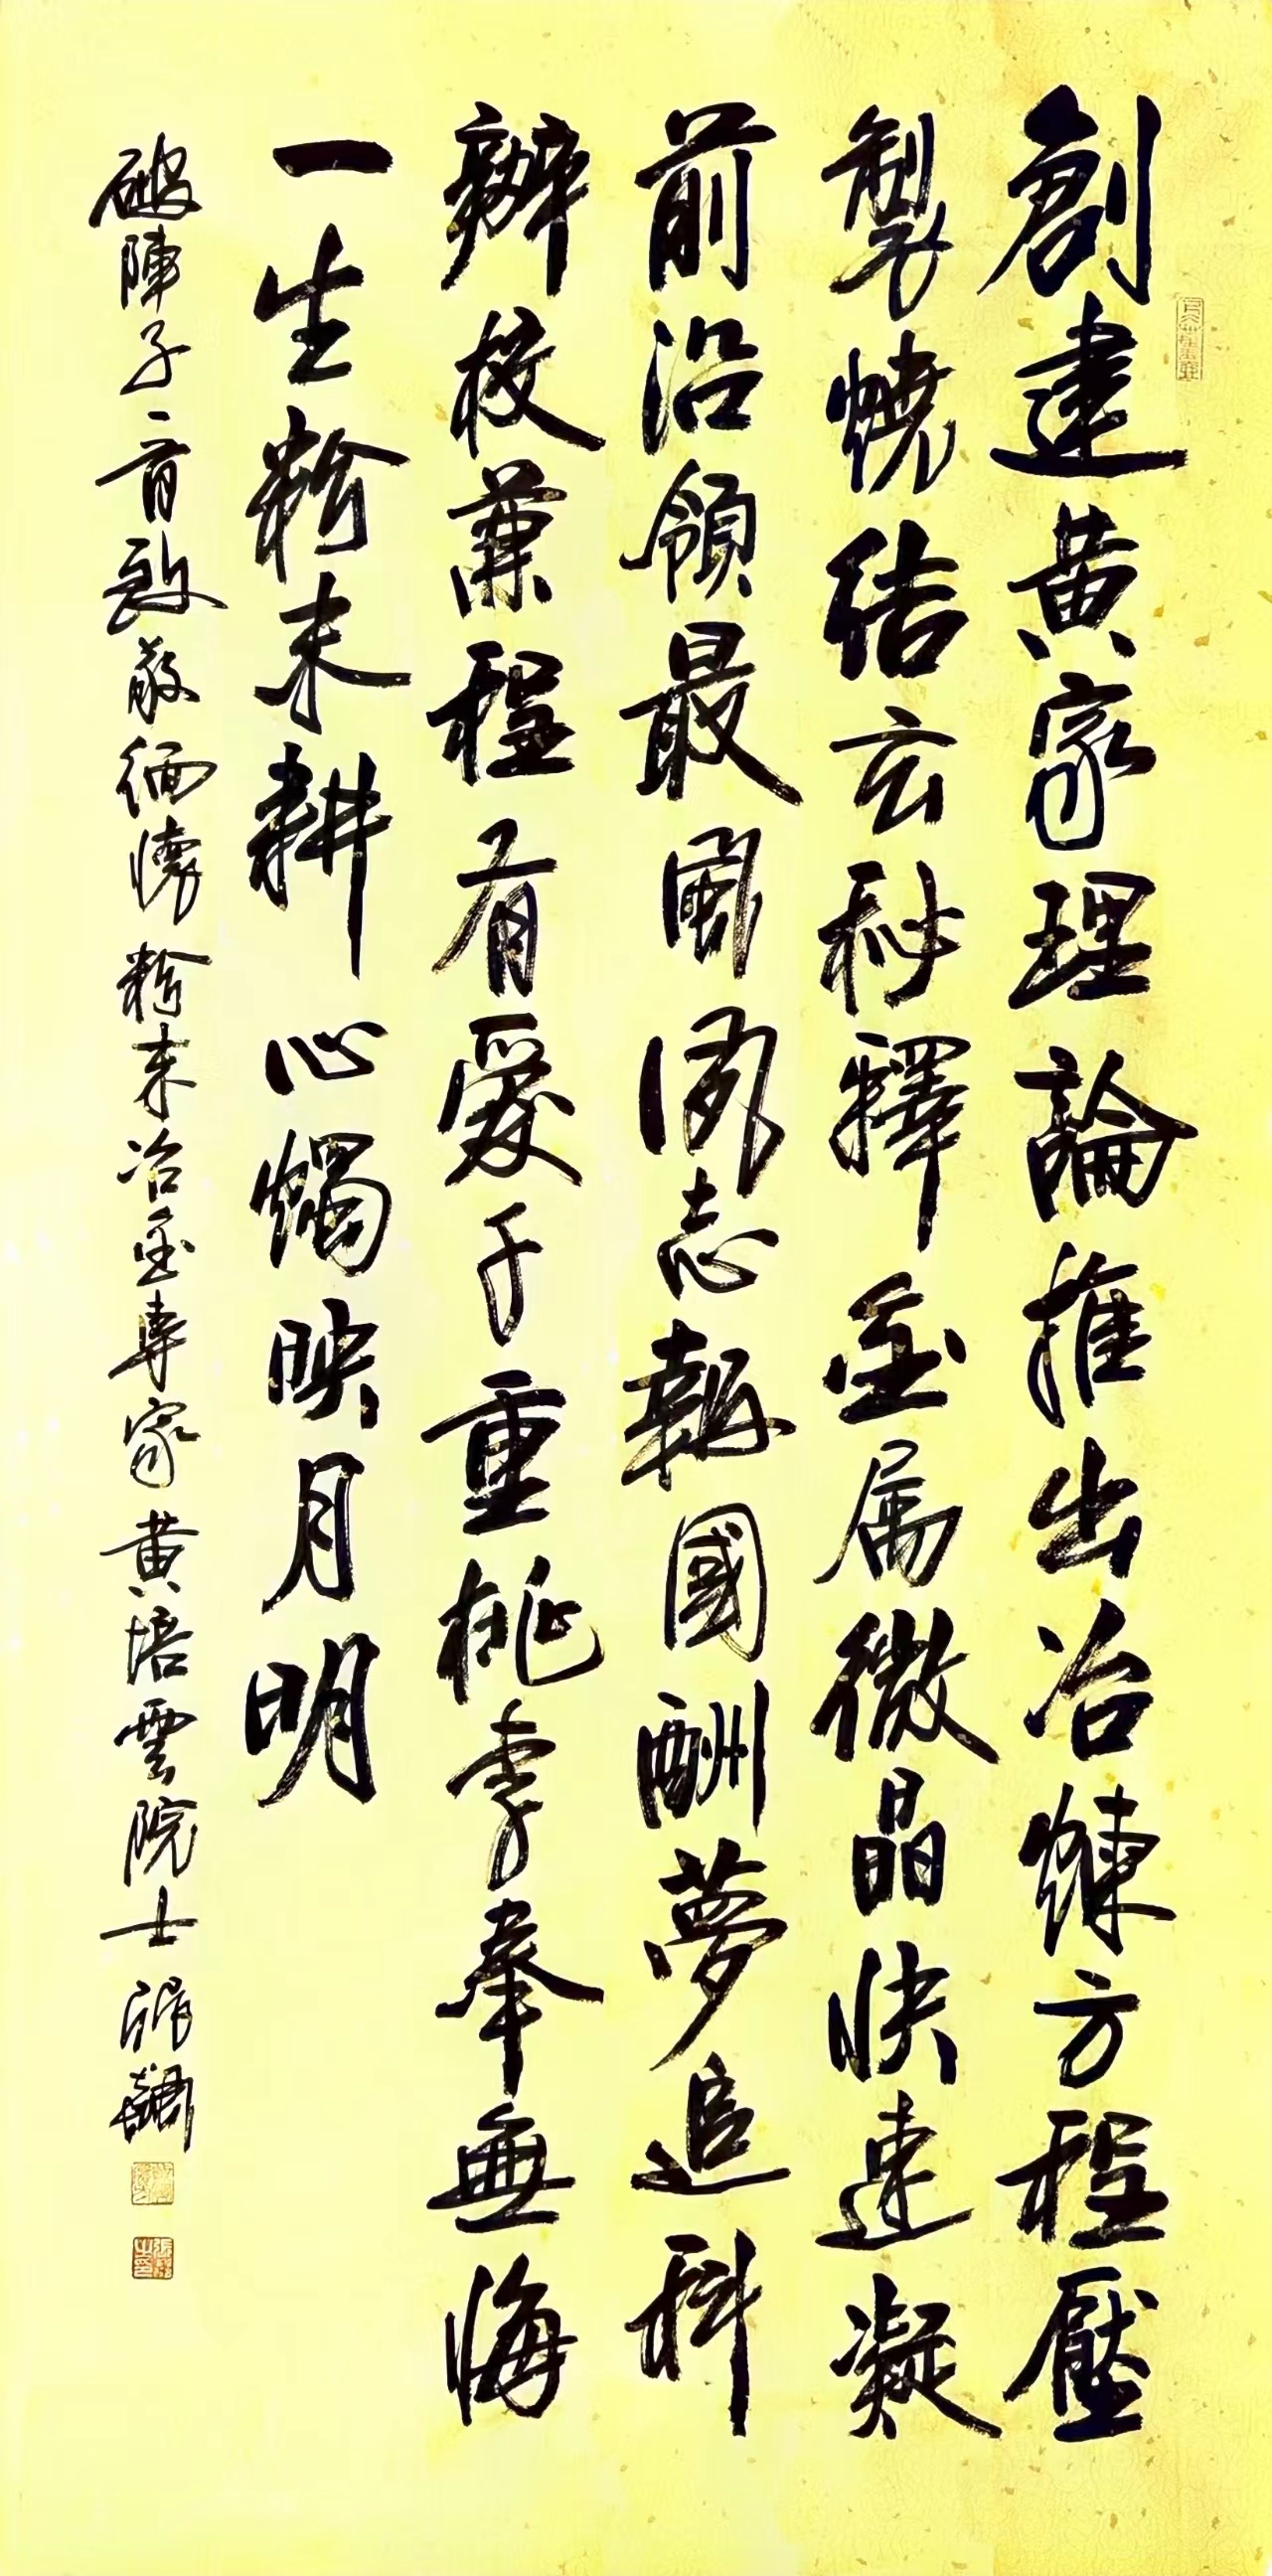 創建黄家理論推出冶煉方程壓
製燒结玄秘釋金属微晶快速凝
前沿領最風流志報國酬夢追科
辦校兼程有爱子重桃李奉無悔
一生粉末耕心燭映月明
破陣子一首致敬缅懷粉末冶金專家黄培雲院士